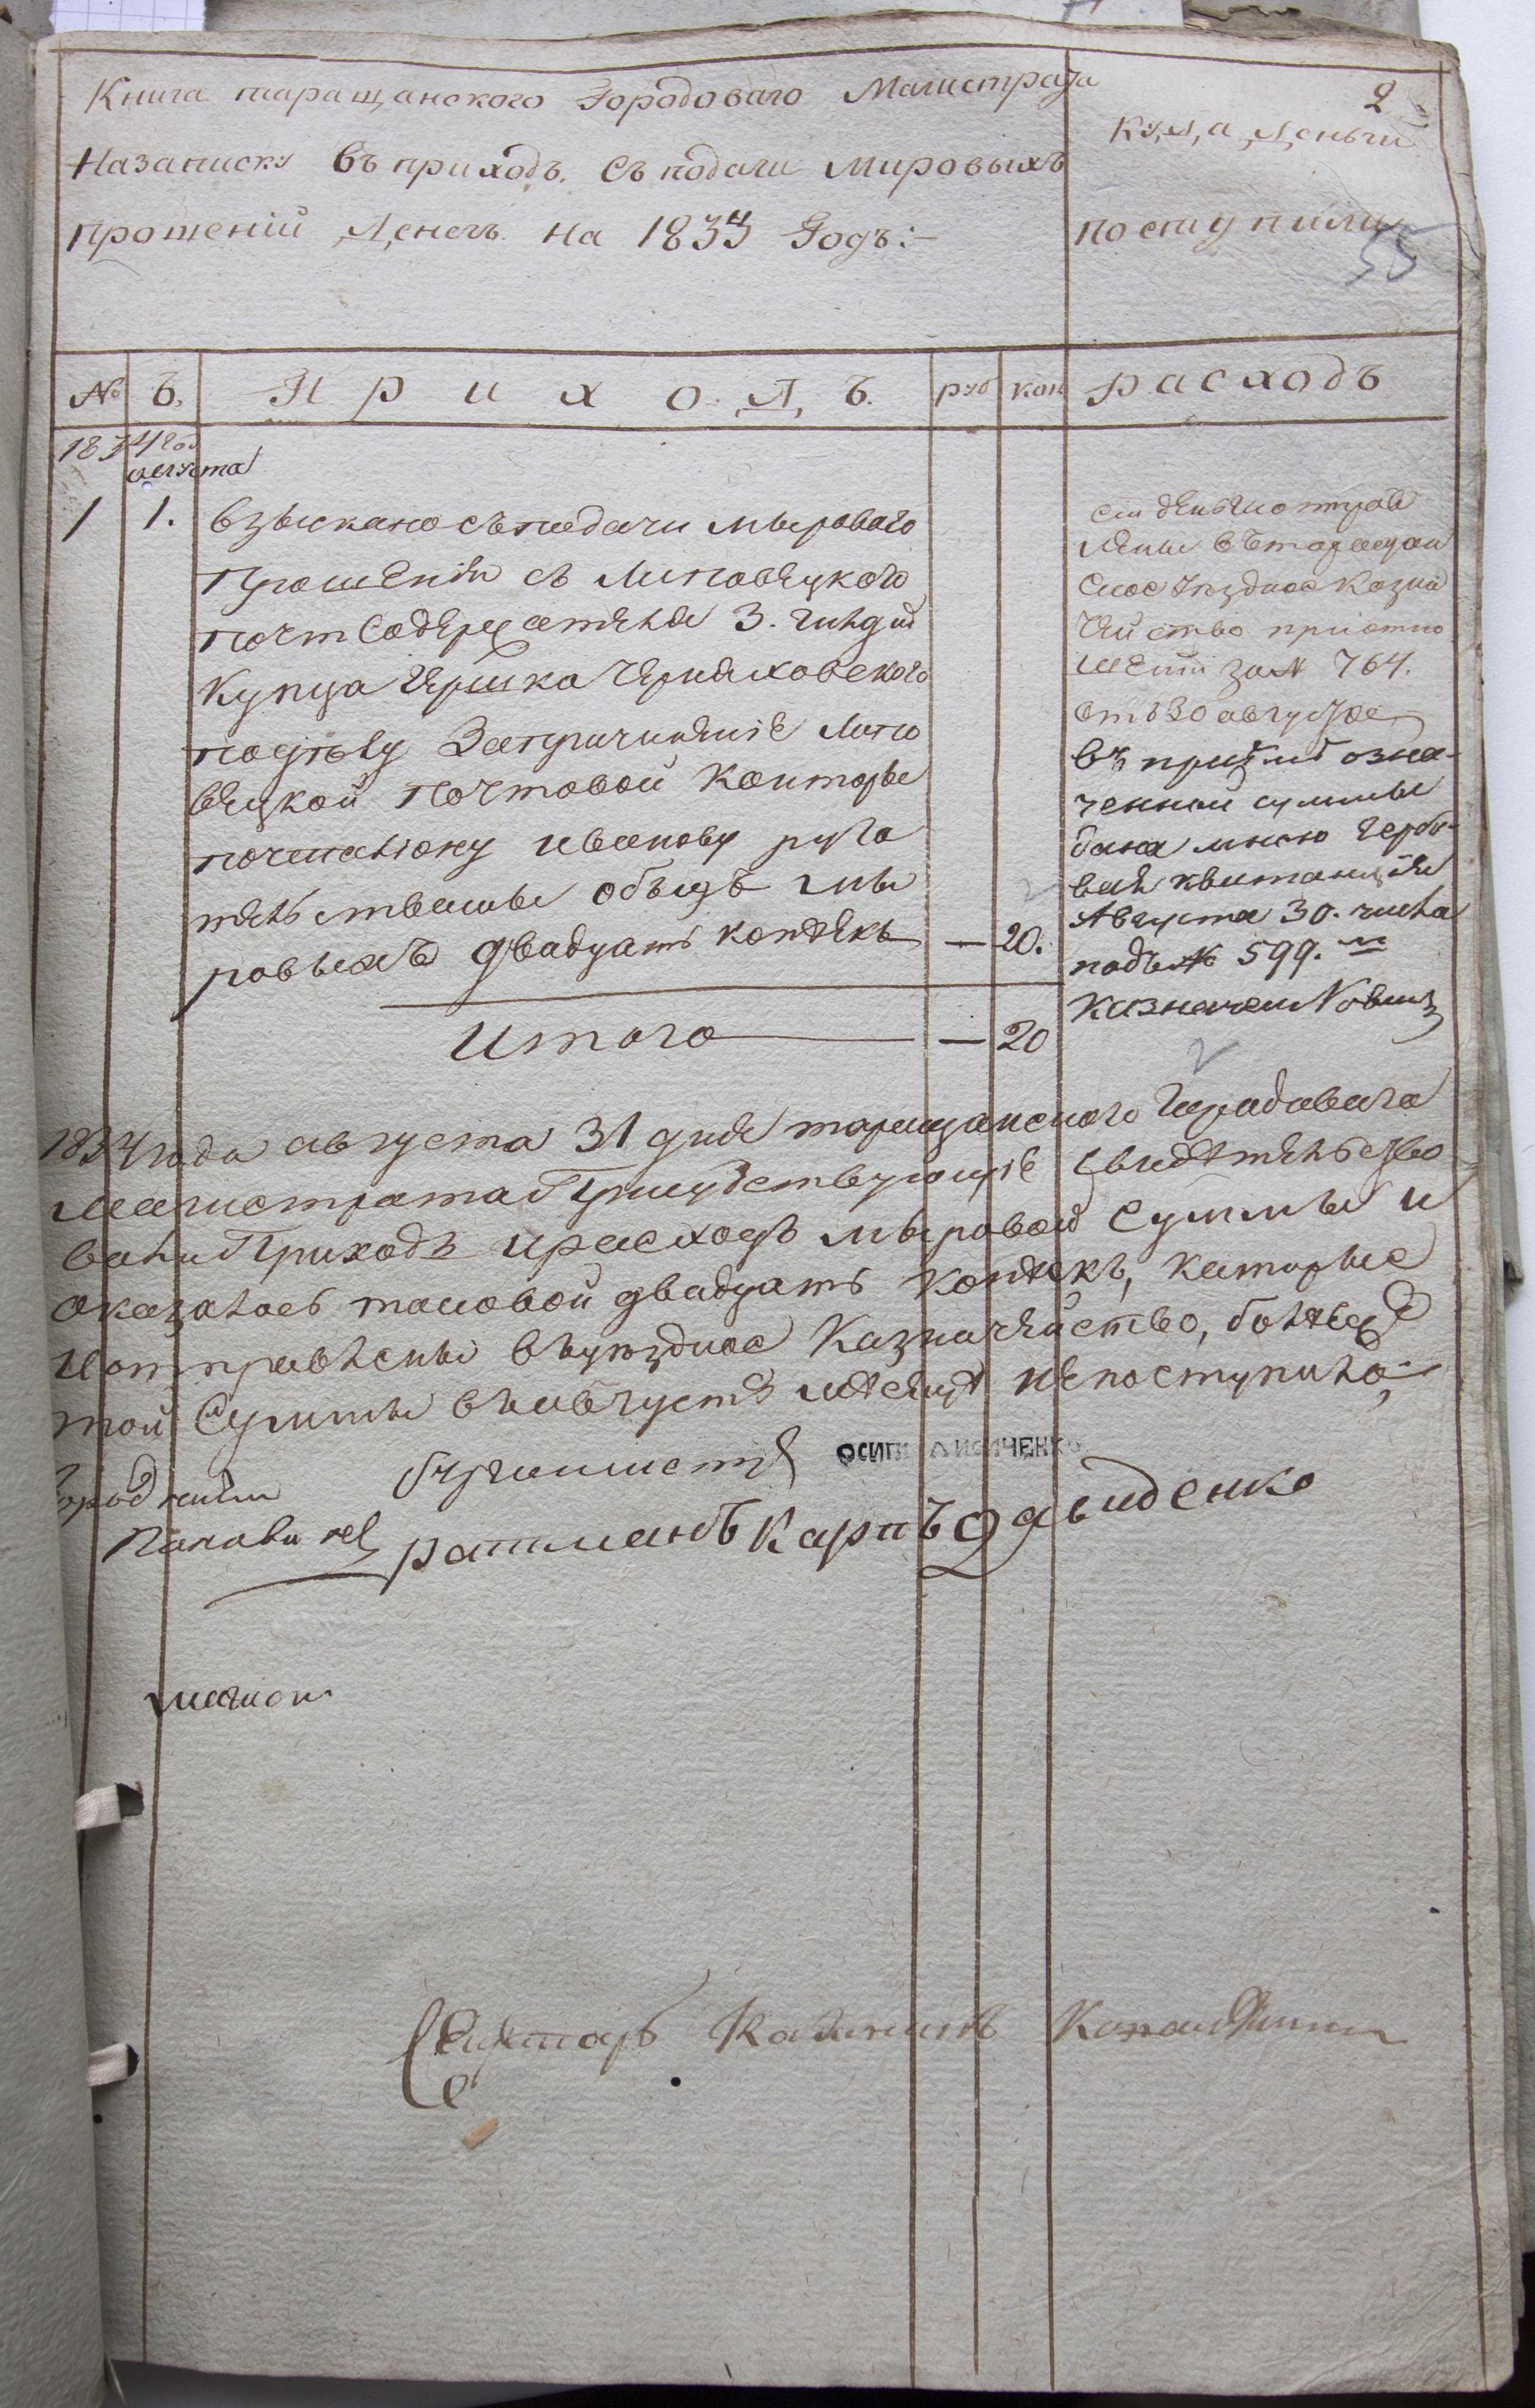 Книга таращанского Городоваго Магистрата
Назаписку въ приходъ. съ подачи мировыхъ
прошеній Денегъ на 1834 Годъ:-
2
куда Деньги
поступили
55
№ Ъ. П р и х о Д Ъ. руб коп расходъ
1834 год
августа
1 1. взыскано съ подачи мыроваго
Прошенія съ Липовецкого
почт Содержателя 3. гилдіи
купца Гершка Черняховского
поделу Запричиненіе Липо
вецкой почтовой Конторы
почталіону иванову руга
тельствамы обыдъ мы
ровыхъ двадцать копеекъ — 20.
Итого — 20
сіи деньги отправ
лены въ таращан
ское Уездное Казна
чейство приотно
шеніи за № 764.
отъ 30 августа
въ пріемъ озна-
ченной суммы
дана мною Гербо-
вая квитанція
Августа 30. числа
подъ № 599.
казначей
1834 года августа 31 дня таращанского Городоваго
Магистрата Присудствующіе свидетельство
вали Приходъ ирасходъ мыровой суммы и
оказалось таковой двадцать копеекъ, которые
иотправлены въуездное Казначейство, более
той Суммы въавгусте месяце непоступило;
бургомистръ ОСИПЪ ЛИСИЧЕНКО
ратманъ Карпъ Давиденко
Секретарь